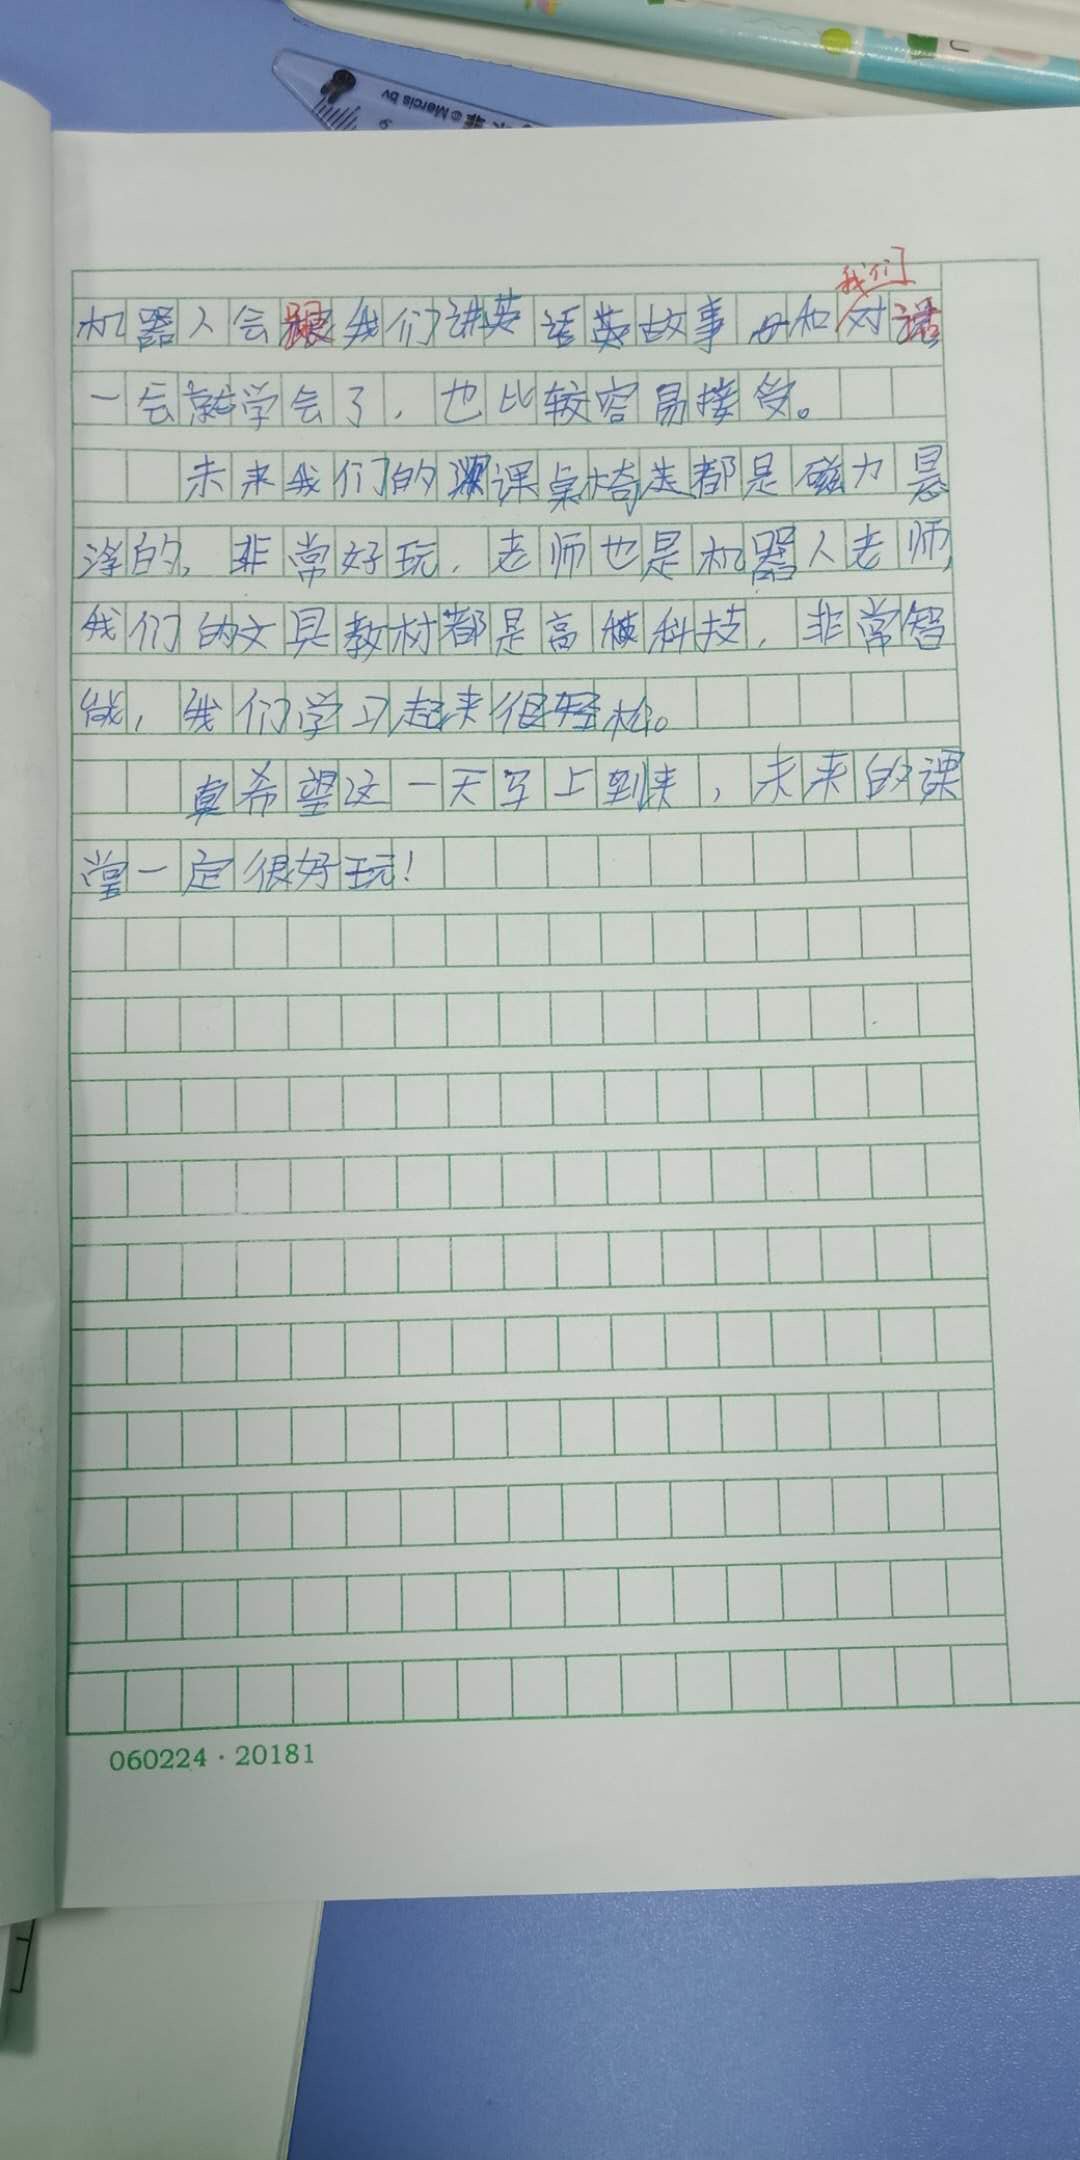 © Marcis by
我们
机器人会跟我们讲英语故事和对话
一会就学会了，也比较容易接受。
未来我们的课桌椅造都是磁力悬
浮的，非常好玩，老师也是机器人老师，
我们的文具教材都是高科技，非常智
能，我们学习起来很轻松。
真希望这一天早上到来，未来的课
堂一定很好玩！
060224·20181